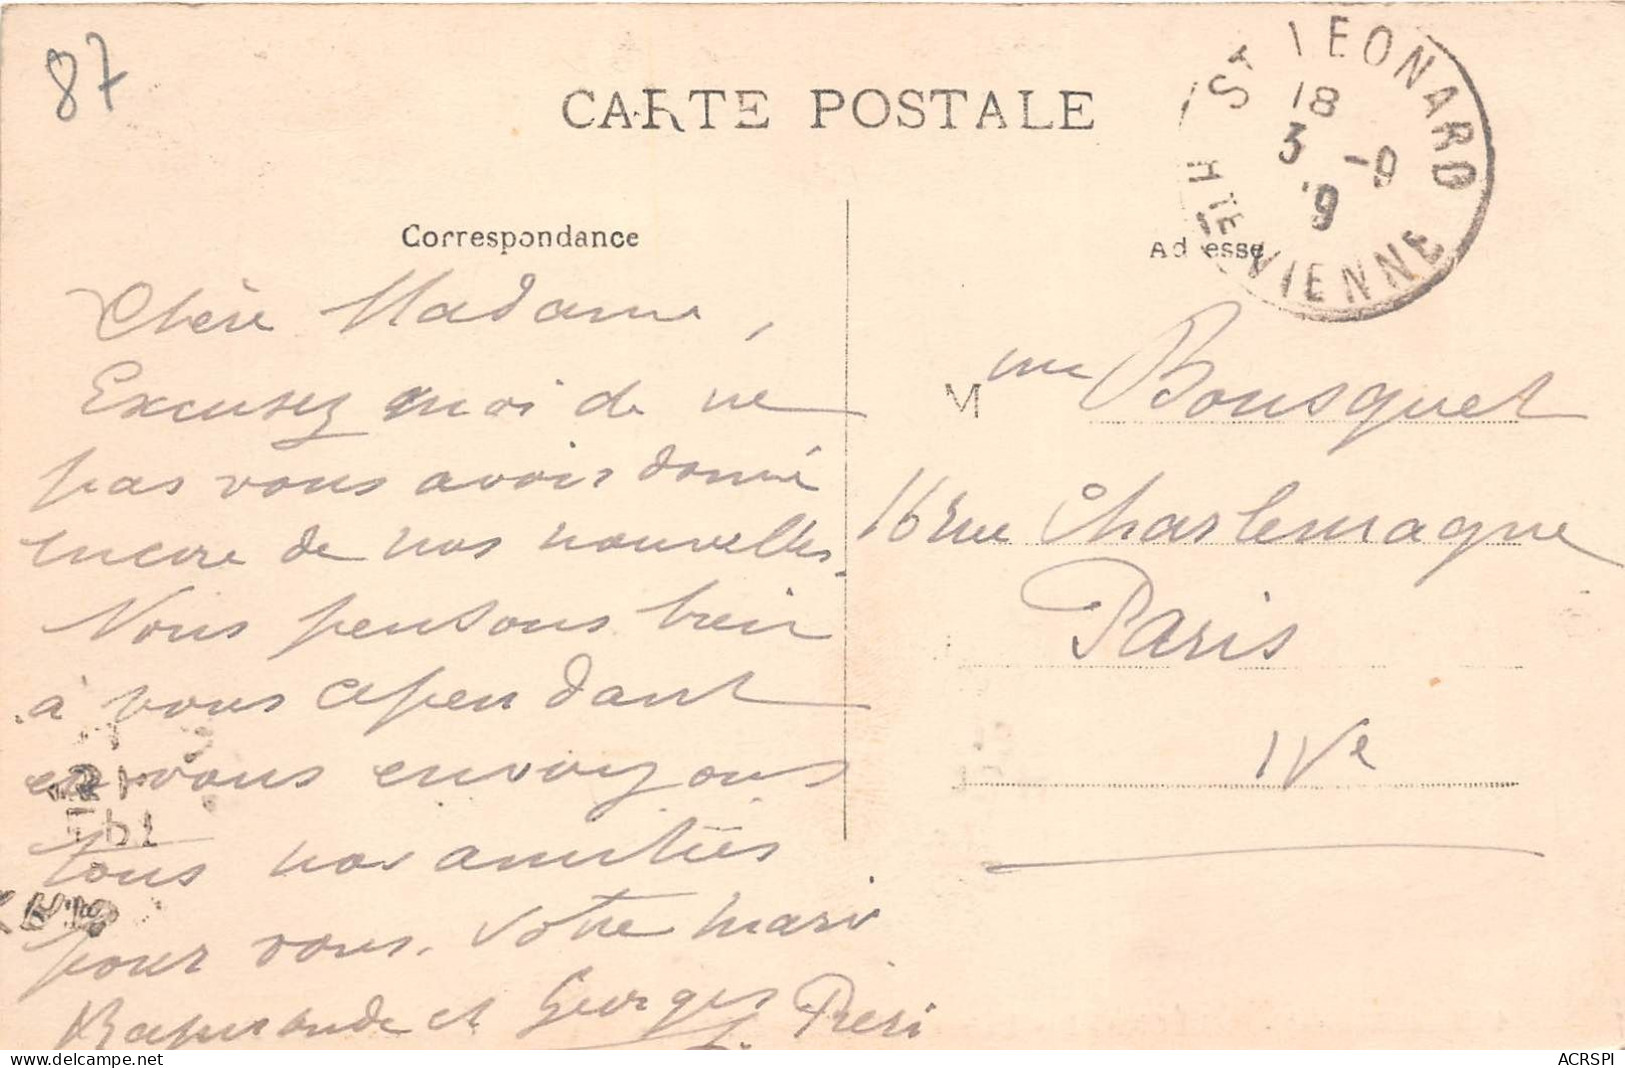 87
CARTE POSTALE
ST LEONARD
18
3 -9
19
HTE VIENNE
Correspondance
Adresse
Chère Madame,
Excusez moi de ne
pas vous avoir donné
encore de nos nouvelles.
Nous pensons bien
à vous cependant
et vous envoyons
tous nos amitiés
pour vous. Votre mari
Raymonde et Georges
Mme Bousquet
16 rue Charlemagne
Paris
IVe
ACRSPI